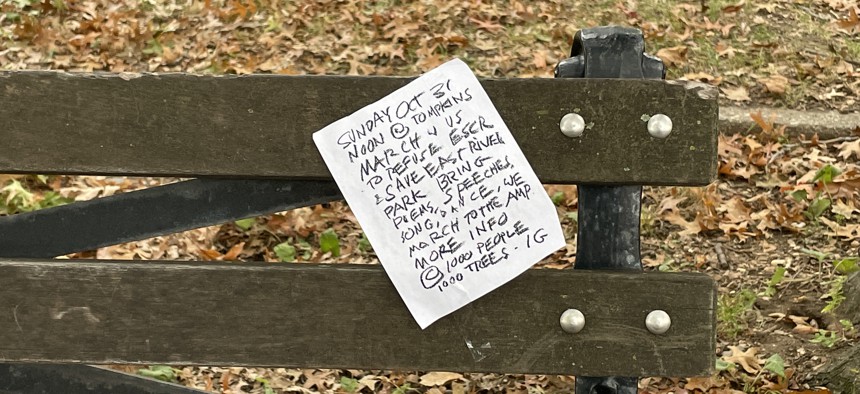 SUNDAY OCT 31
NOON @ TOMPKINS
MARCH W US
TO REFUSE ESCR
& SAVE EAST RIVER
PARK BRING
POEMS, SPEECHES,
SONG, DANCE, WE
MARCH TO THE AMP
MORE INFO
@ 1000 PEOPLE
1000 TREES - IG